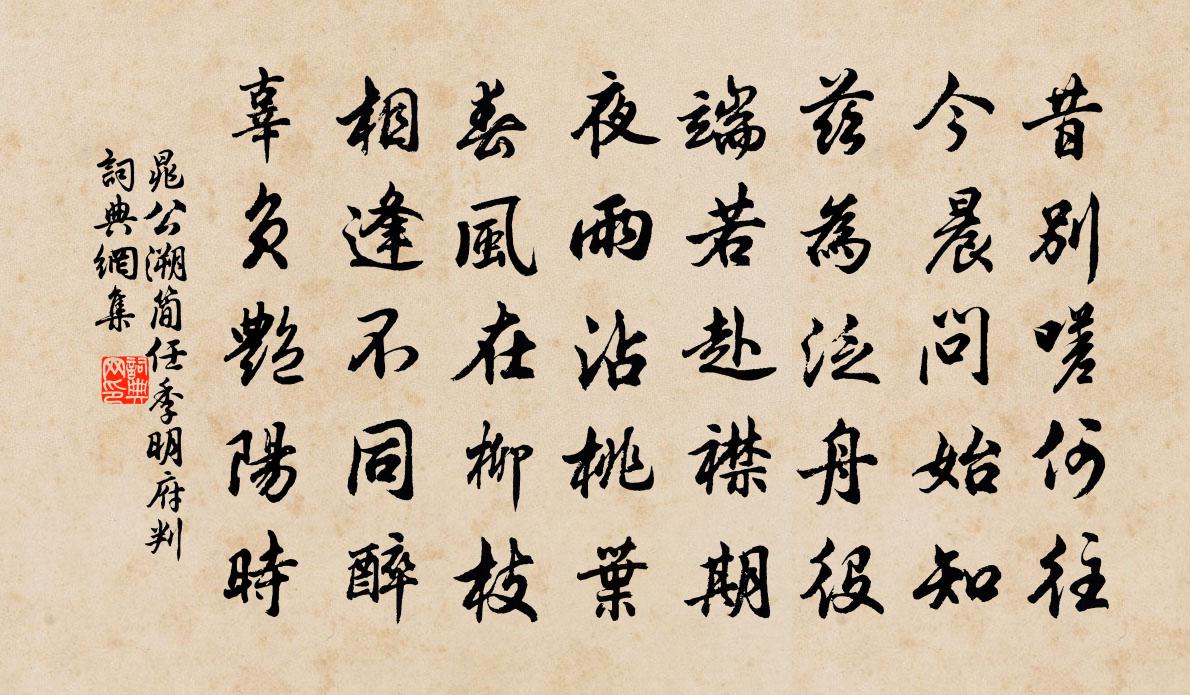 昔別嗟何往
今晨問始知
茲為泛舟役
端若赴襟期
夜雨沾桃葉
春風在柳枝
相逢不同醉
辜負艷陽時
晁公溯簡任季明府判
詞典網集
詞典網印